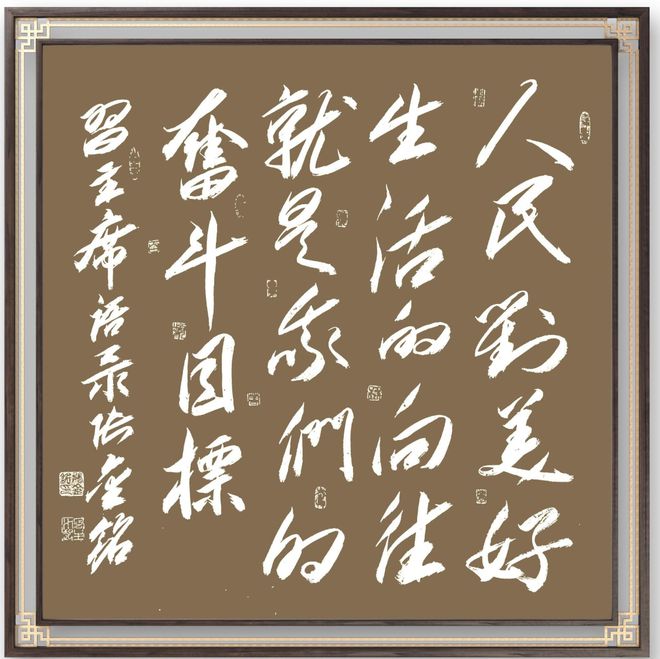 人民對美好
生活的向往
就是我們的
奮斗目標
習主席语录张金铭